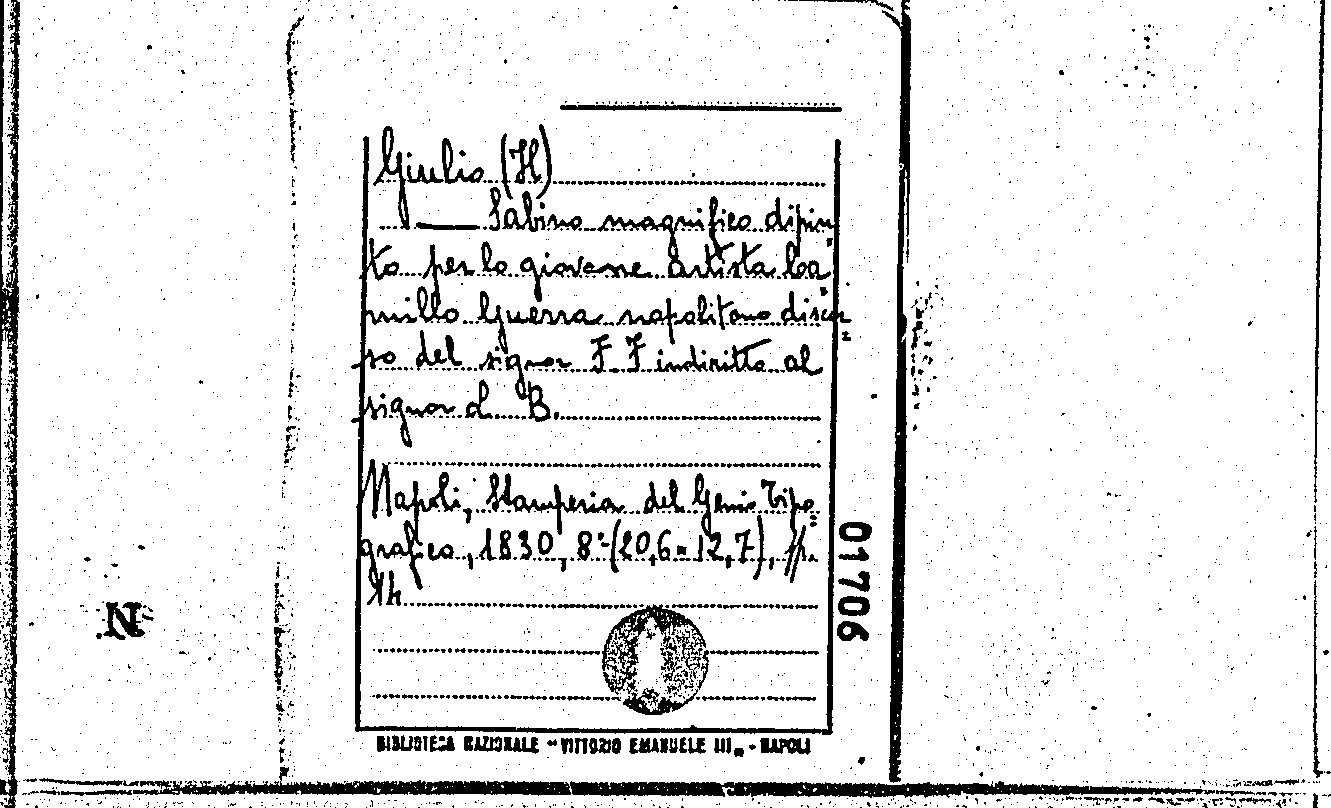 Giulio (H)
Sabino magnifico dipin=
to per lo giovane artista Ca=
millo Guerra napolitano discor=
so del signor F. F indiritto al
signor d B.
Napoli, Stamperia del Genio Tipo=
grafico, 1830, 8°-(20,6=12,7), pp.
01706
N
BIBLIOTECA NAZIONALE "VITTORIO EMANUELE III„ - NAPOLI